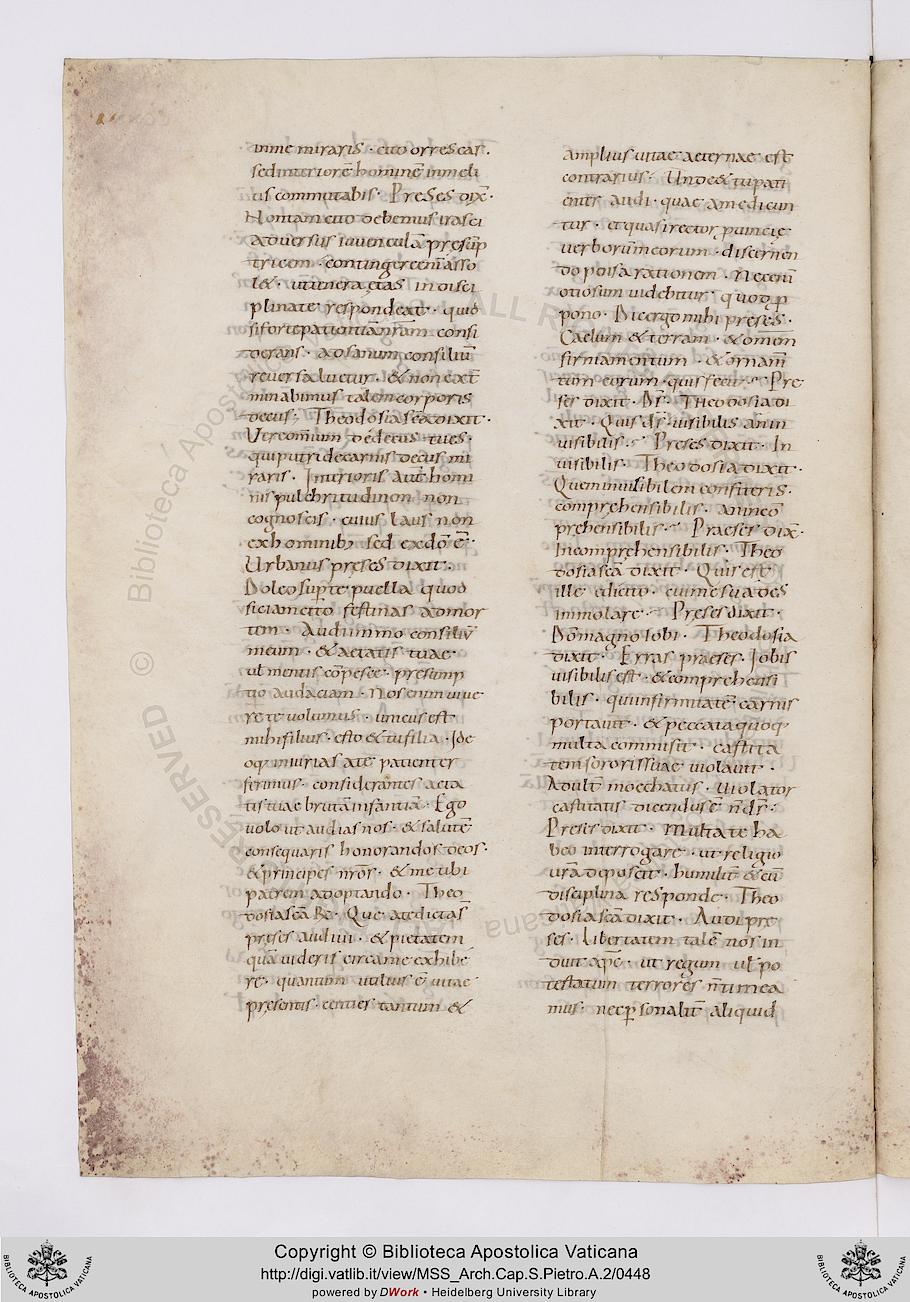 inme miraris · cito orrescas ·
sed interiorē hominē inmeli
us commutabis · Preses dix̄ ·
Non tam cito debemus irasci
adversus iuvenculā presup
tricem · contingere enī asso
l& · ut tenera ętas in disci
plinate respondeat · quid
si forte patientiā nr̄am consi
derans · ad sanum consiliū
reversa luctur · & non ext̄
minabimus talem corporis
decus · Theodosia sc̄a dixit ·
qui putride carnis decus mi
raris · Interioris aut̄ homi
nis pulchritudinem non
cognoscis · cuius laus non
ex hominib; sed ex dō ē ·
Urbanus pręses dixit ·
Doleo sup te puella quod
sic iam cito festinas ad mor
tem · Audi immo consiliū
meum · & aetatis tuae
ul mentis cōpesce · presump
tio audaciam · Nos enim vive
re te volumus · unicus est
mihi filius · esto & tu filia · Ide
oq; iniurias a te patienter
ferimus · considerantes aeta
tis tuae brutā infantiā · Ego
volo ut audias nos · & salutē
consequaris honorandos deos ·
& principes nr̄os · & me tibi
patrem adoptando · Theo
dosia sc̄a R̄e · Que a te dicta s̄
pręses audiui · & pietatem
quā uideris circa me exhibe
re · quantum utilius ē uitae
presentis · centies tantum &
amplius uitae aeternae est
contrarius · Unde & tu pati
enter audi · quae a me dicun
tur · et quasi rector puincię
uerborum eorum · discernen
do poisa rationem · Nec enī
otiosum uidebitur · quod p
pono · Dic ergo mihi preses ·
Caelum & terram · & omēm
firmamentum · & ornam̄
tum eorum · quis fecit · Pre
ses dixit · Dr̄ · Theodosia di
xit · Quis dr̄ · uisibilis an in
uisibilis · Preses dixit · In
uisibilis · Theodosia dixit ·
Quem inuisibilem confiteris ·
comprehensibilis · an incō
prehensibilis · Praeses dix̄ ·
Incomprehensibilis · Theo
dosia sc̄a dixit · Quis est
ille edicito · cui me suades
immolare · Preses dixit ·
Dō magno Iobi · Theodosia
dixit · Erras praeses · Iobis
uisibilis est · & comprehensi
bilis · qui infirmitatē carnis
portauit · & peccata quoq;
multa commisit · castita
tem sororis suae uiolauit ·
Adult̄ moechatus · Uiolator
castitatis dicendus ē n̄ dr̄ ·
Preses dixit · Multa te ha
beo interrogare · ut religio
ur̄a deposcit · humilit̄ & cū
disciplina responde · Theo
dosia sc̄a dixit · Audi pre
ses · Libertatem talē nos in
duit xp̄c · ut regum ul po
testatum terrores n̄ timea
mus · nec p̄sonalit̄ aliquid
Copyright © Biblioteca Apostolica Vaticana
http://digi.vatlib.it/view/MSS_Arch.Cap.S.Pietro.A.2/0448
powered by DWork • Heidelberg University Library